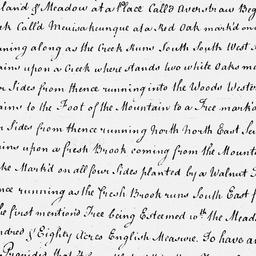 land & Meadow at a Place Call'd Averstraw Beg
ek Call'd Meuisakeunque at a Red Oak mark'd on
ning along as the Creek Runs South South West
ains upon a Creek where Stands two white Oaks ma
r Sides from thence running into the Woods Wester
ains to the Foot of the Mountain to a Tree mark'd
r Sides from thence running North North East Se
ins upon a fresh Brook coming from the Mount
ke Mark'd on all four Sides planted by a Walnut
nce running as the fresh Brook runs South East f
he first mention'd Tree being Esteemed with the Mead
ndred & Eighty Acres English Measure. To have an
Provided that